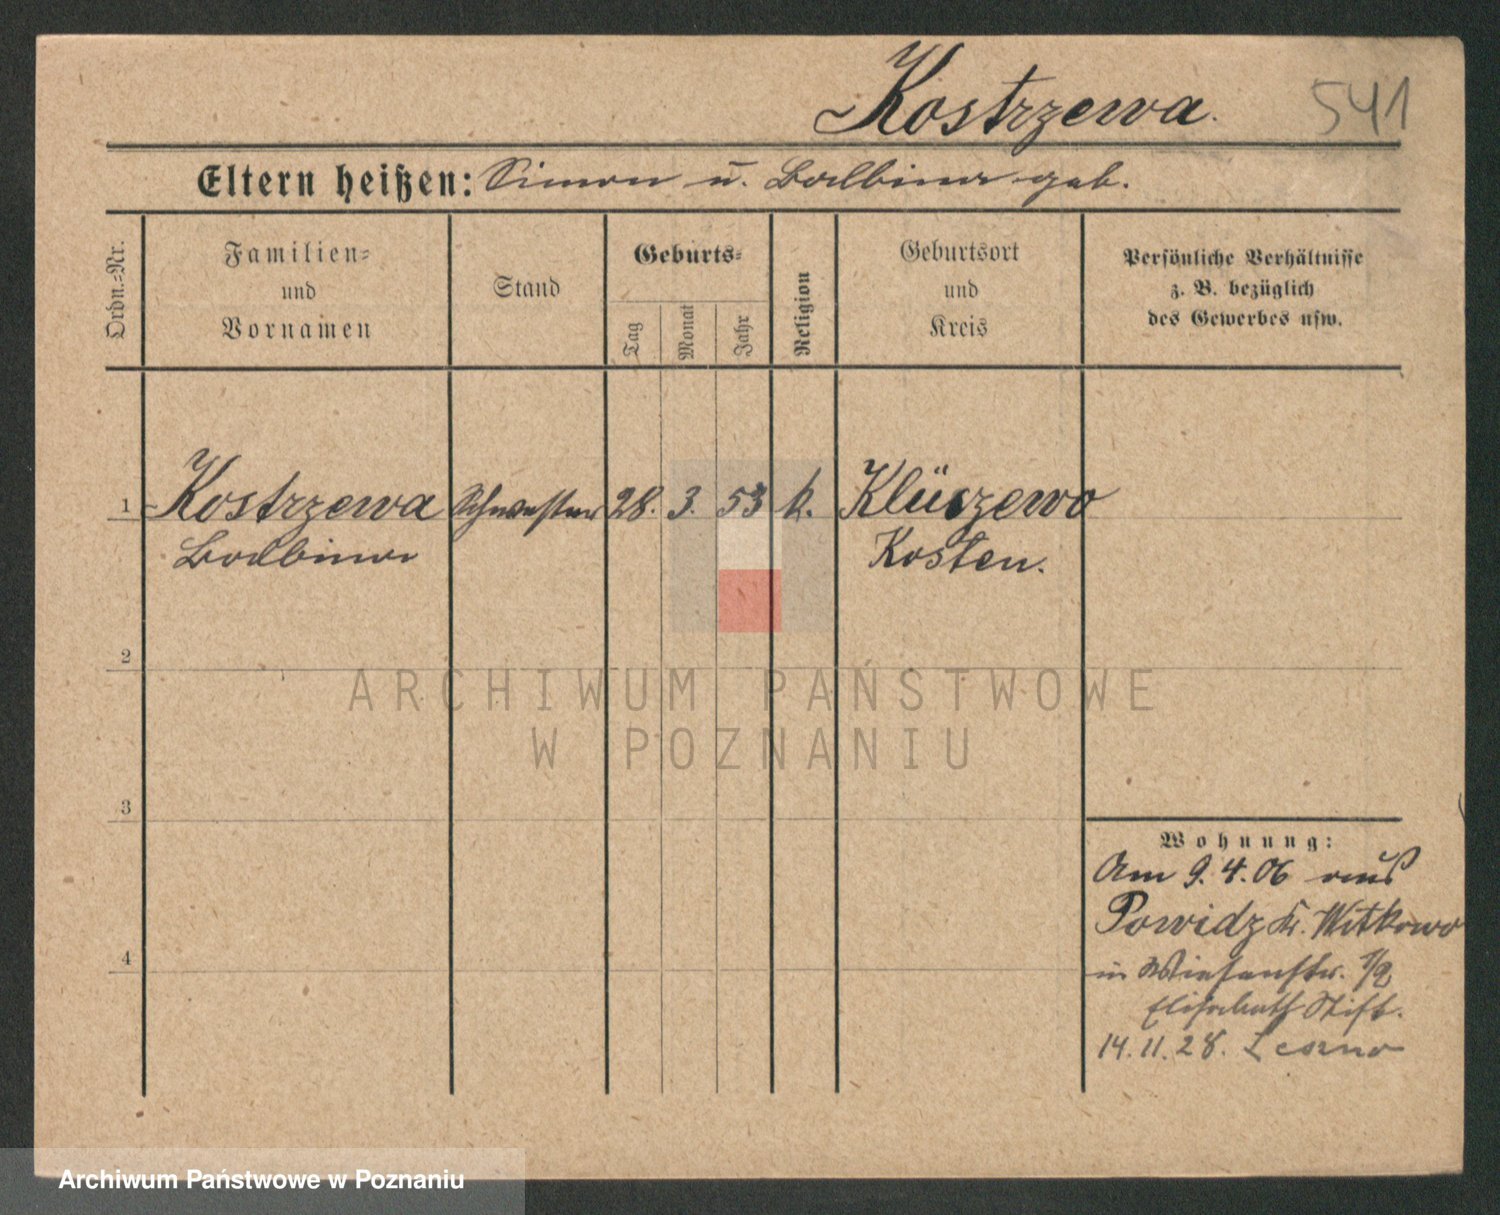 Kostrzewa. 541
Eltern heißen: Simon u. Balbina geb.
Ordn.-Nr.
Familien-
und
Vornamen
Stand
Geburts-
Tag
Monat
Jahr
Religion
Geburtsort
und
Kreis
Persönliche Verhältnisse
z. B. bezüglich
des Gewerbes usw.
1 Kostrzewa Schwester 28. 3. 53 k. Klüszewo
Balbina Kosten.
2
ARCHIWUM PAŃSTWOWE
W POZNANIU
3
Wohnung:
Am 9. 4. 06 aus
Powidz Kr. Witkowo
in Wiesenstr. 1/2
Elisabeth Stift.
4
14. 11. 28. Leszno
Archiwum Państwowe w Poznaniu